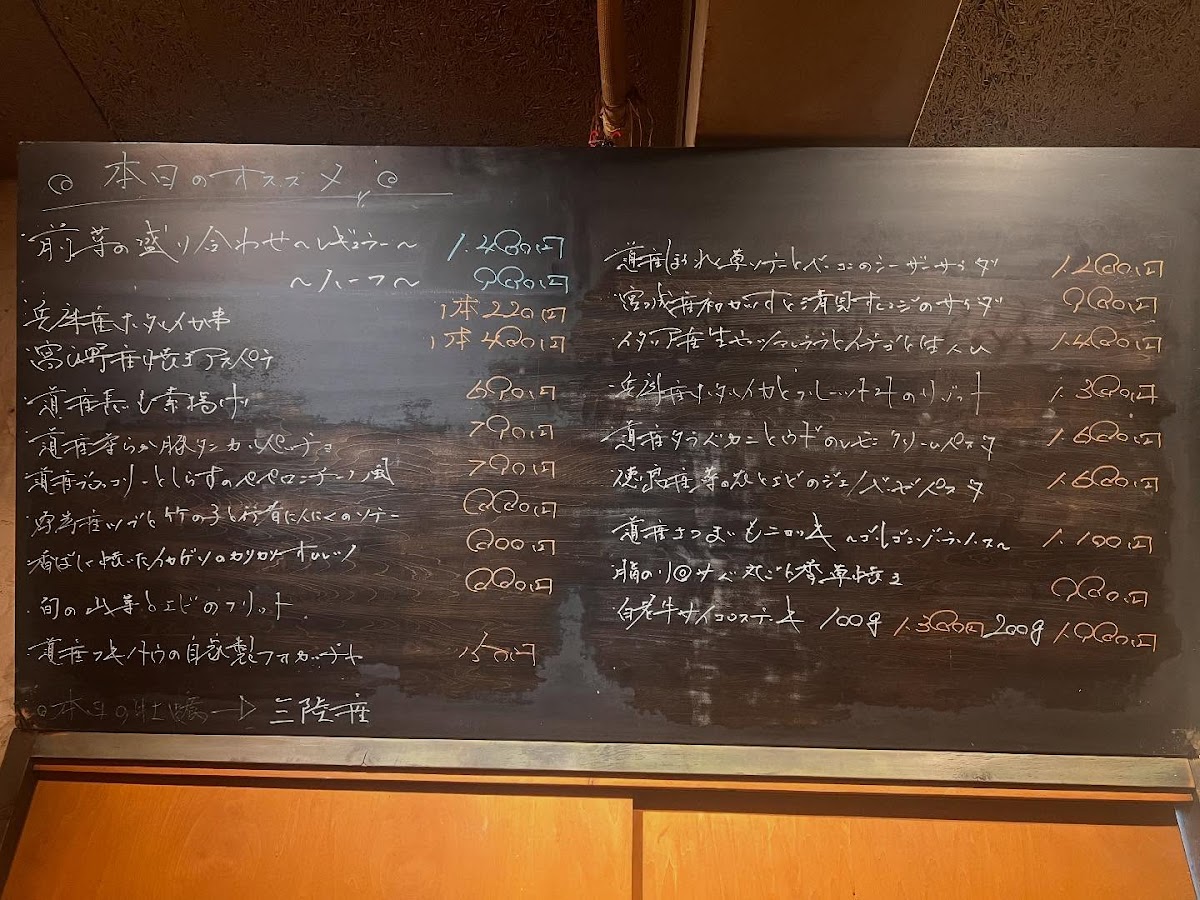 本日のオススメ
・前菜の盛り合わせ〜レギュラー〜 1.480円
〜ハーフ〜 980円
・兵庫産ホタルイカ串 1本220円
富良野産焼きアスパラ 1本480円
・道産長いも素揚げ 690円
・道産豚タンカルパッチョ 790円
道産ブロッコリーとしらすのペペロンチーノ風 790円
産ツブと竹の子と行者にんにくのソテー 880円
・香ばしく焼いたイカゲソのカリカリ 800円
・旬の山菜とエビのフリット 880円
・道産の自家製フォカッチャ 150円
本日の牡蠣→三陸産
・道産ほうれん草ソテーとベーコンのシーザーサラダ 1.280円
・宮城産と清見オレンジのサラダ 980円
・イタリア産生モッツァレラとイチゴと生ハム 1.480円
・兵庫産ホタルイカとのリゾット 1.380円
・道産タラバカニとウドのレモンクリームパスタ 1.680円
・徳島産菜の花とエビのジェノベーゼパスタ 1.680円
・道産さつまいもニョッキ〜ゴルゴンゾーラソース〜 1.100円
・脂のり◎サバ丸ごと香草焼き 980円
・白老牛サイコロステーキ 100g 1.380円 200g 1.980円